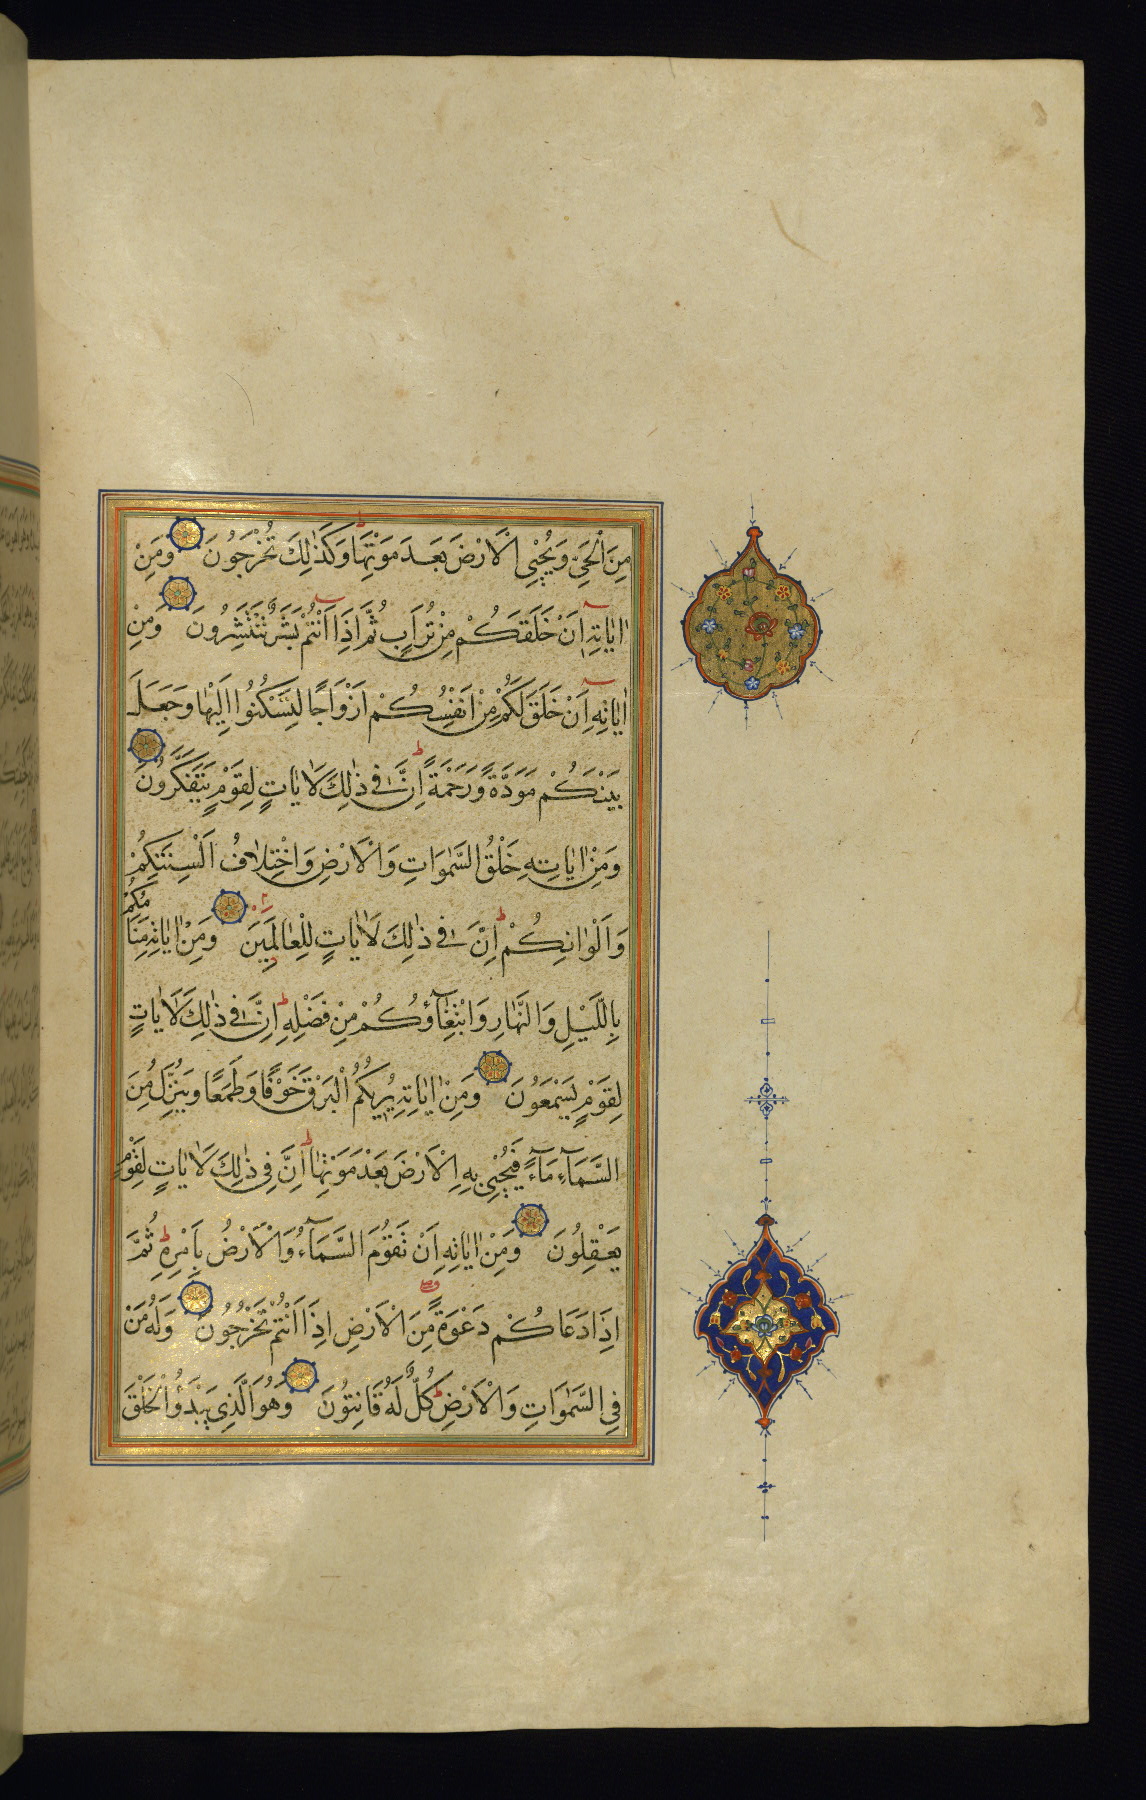 مِنَ الْحَيِّ وَيُحْيِي الْاَرْضَ بَعْدَ مَوْتِهَا ط وَكَذٰلِكَ تُخْرَجُونَ وَمِنْ
اٰيَاتِهٖٓ اَنْ خَلَقَكُمْ مِنْ تُرَابٍ ثُمَّ اِذَٓا اَنْتُمْ بَشَرٌ تَنْتَشِرُونَ وَمِنْ
اٰيَاتِهٖٓ اَنْ خَلَقَ لَكُمْ مِنْ اَنْفُسِكُمْ اَزْوَاجًا لِتَسْكُنُوا اِلَيْهَا وَجَعَلَ
بَيْنَكُمْ مَوَدَّةً وَرَحْمَةً ط اِنَّ فِي ذٰلِكَ لَاٰيَاتٍ لِقَوْمٍ يَتَفَكَّرُونَ
وَمِنْ اٰيَاتِهٖ خَلْقُ السَّمٰوَاتِ وَالْاَرْضِ وَاخْتِلَافُ اَلْسِنَتِكُمْ
وَاَلْوَانِكُمْ ط اِنَّ فِي ذٰلِكَ لَاٰيَاتٍ لِلْعَالِمِينَ وَمِنْ اٰيَاتِهٖ مَنَامُكُمْ
بِالَّيْلِ وَالنَّهَارِ وَابْتِغَٓاؤُكُمْ مِنْ فَضْلِهٖ ط اِنَّ فِي ذٰلِكَ لَاٰيَاتٍ
لِقَوْمٍ يَسْمَعُونَ وَمِنْ اٰيَاتِهٖ يُرِيكُمُ الْبَرْقَ خَوْفًا وَطَمَعًا وَيُنَزِّلُ مِنَ
السَّمَٓاءِ مَٓاءً فَيُحْيٖ بِهِ الْاَرْضَ بَعْدَ مَوْتِهَا ط اِنَّ فِي ذٰلِكَ لَاٰيَاتٍ لِقَوْمٍ
يَعْقِلُونَ وَمِنْ اٰيَاتِهٖٓ اَنْ تَقُومَ السَّمَٓاءُ وَالْاَرْضُ بِاَمْرِهٖ ط ثُمَّ
اِذَا دَعَاكُمْ دَعْوَةً مِنَ الْاَرْضِ اِذَا اَنْتُمْ تَخْرُجُونَ وَلَهُ مَنْ
فِي السَّمٰوَاتِ وَالْاَرْضِ ط كُلٌّ لَهُ قَانِتُونَ وَهُوَ الَّذِي يَبْدَؤُا الْخَلْقَ